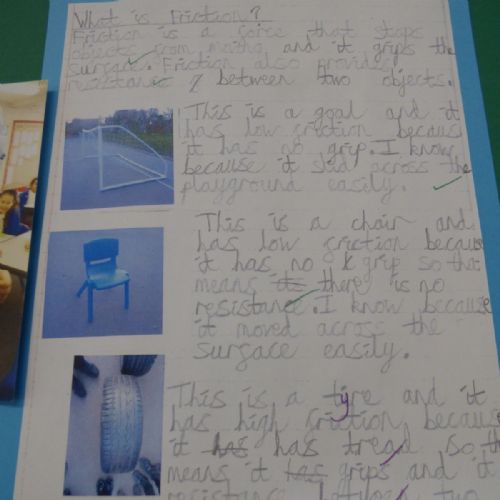 What is Friction?
Friction is a force that stops
objects from moving and it grips the
surface. Friction also provides
resistance between two objects.
This is a goal and it
has low friction because
it has no grip. I know
because it slid across the
playground easily.
This is a chair and
has low friction because
it has no grip so that
means its there is no
resistance. I know because
it moved across the
surface easily.
This is a tyre and it
has high friction because
it has has tread so th
means it has grips and it
resistance between two